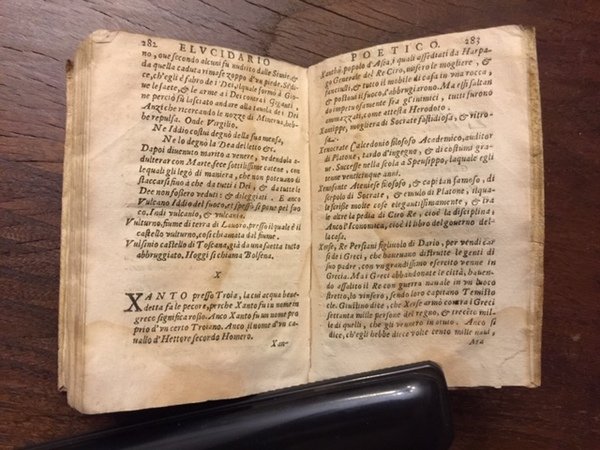 282 ELVCIDARIO
no, oue secondo alcuni fu nudrito dalle Simie, &
da quella caduta rimase zoppo d'un piede. Si di-
ce, ch'egli è fabro de i Dei, ilquale formò à Gioue
le saete, & le arme a i Dei contra i Giganti;
ne perciò fu lasciato andare alla tauola de i Dei.
Anzi che ricercando le nozze di Minerua, heb-
be repulsa. Onde Virgilio.
Ne Iddio costui degnò de la sua mensa,
Ne lo degnò la Dea del letto &c.
Dapoi diuenuto marito a Venere, vedendola a-
dulterar con Marte, fece sottilissime catene, con
le quali gli legò di maniera, che non poteuano di
staccarsi fino a che da tutti i Dei, & da tutte le
Dee non fossero veduti; & dileggiati. E anco
Vulcano Iddio del fuoco, et spesso si pone pel fuo
co. Indi vulcanio, & vulcanio.
Vulturno, fiume di terra di Lauoro, presso ilquale è il
castello vulturno, cosi chiamata dal fiume.
Vulsinio castello di Toscana, già da una saetta tutto
abbruggiato, Hoggi si chiama Bolsena.
X
XANTO presso Troia, la cui acqua beue-
detta fa le pecore, perche Xanto fu in nome in
greco significa rosso. Anco Xanto fu un nome pro
prio d'un certo Troiano. Anco il nome d'un ca-
uallo d'Hettore secondo Homero.
Xan-
POETICO. 283
Xanthij, popolo d'Asia, i quali assediati da Harpa-
go Generale del Re Ciro, misero le mogliere, &
fanciulli, & tutto il mobile di casa in una rocca,
& postoui il fuoco, l'abbrugiarono. Ma essi saltan
do impetuosamente fra gl'inimici, tutti furono
ammazzati, come attesta Herodoto.
Xantippe, mogliera di Socrate fastidiosa, & ritro-
sa.
Xenocrate Calcedonio filosofo Academico, auditor
di Platone, tardo d'ingegno, & di costumi gra-
ue. Successe nella scola a Speusippo, laquale egli
tenne venticinque anni.
Xenofonte Ateniese filosofo, & capitan famoso, di
scepolo di Socrate, & emulo di Platone, ilqua-
le scrisse molte cose elegantissimamente, & tra
le altre la pedia di Ciro Re, cioè la disciplina,
Anco l'Economica, cioè il libro del gouerno del-
la cosa.
Xerse, Re Persiani figliuolo di Dario, per vendicar
si de i Greci, che haueuano distrutte le genti di
suo padre, con vn grandissimo esercito venne in
Grecia. Ma i Greci abbandonate le città, hauen-
do assalito il Re con guerra nauale in un luoco
stretto, lo vinsero, sendo loro capitano Temisto
cle. Giustino dice, che Xerse armò contra i Greci
settanta mille persone del regno, & trecẽto mil
le di quelli, che gli vennero in aiuto. Anco si
dice, ch'egli hebbe diece volte cento mille naui,
Ma